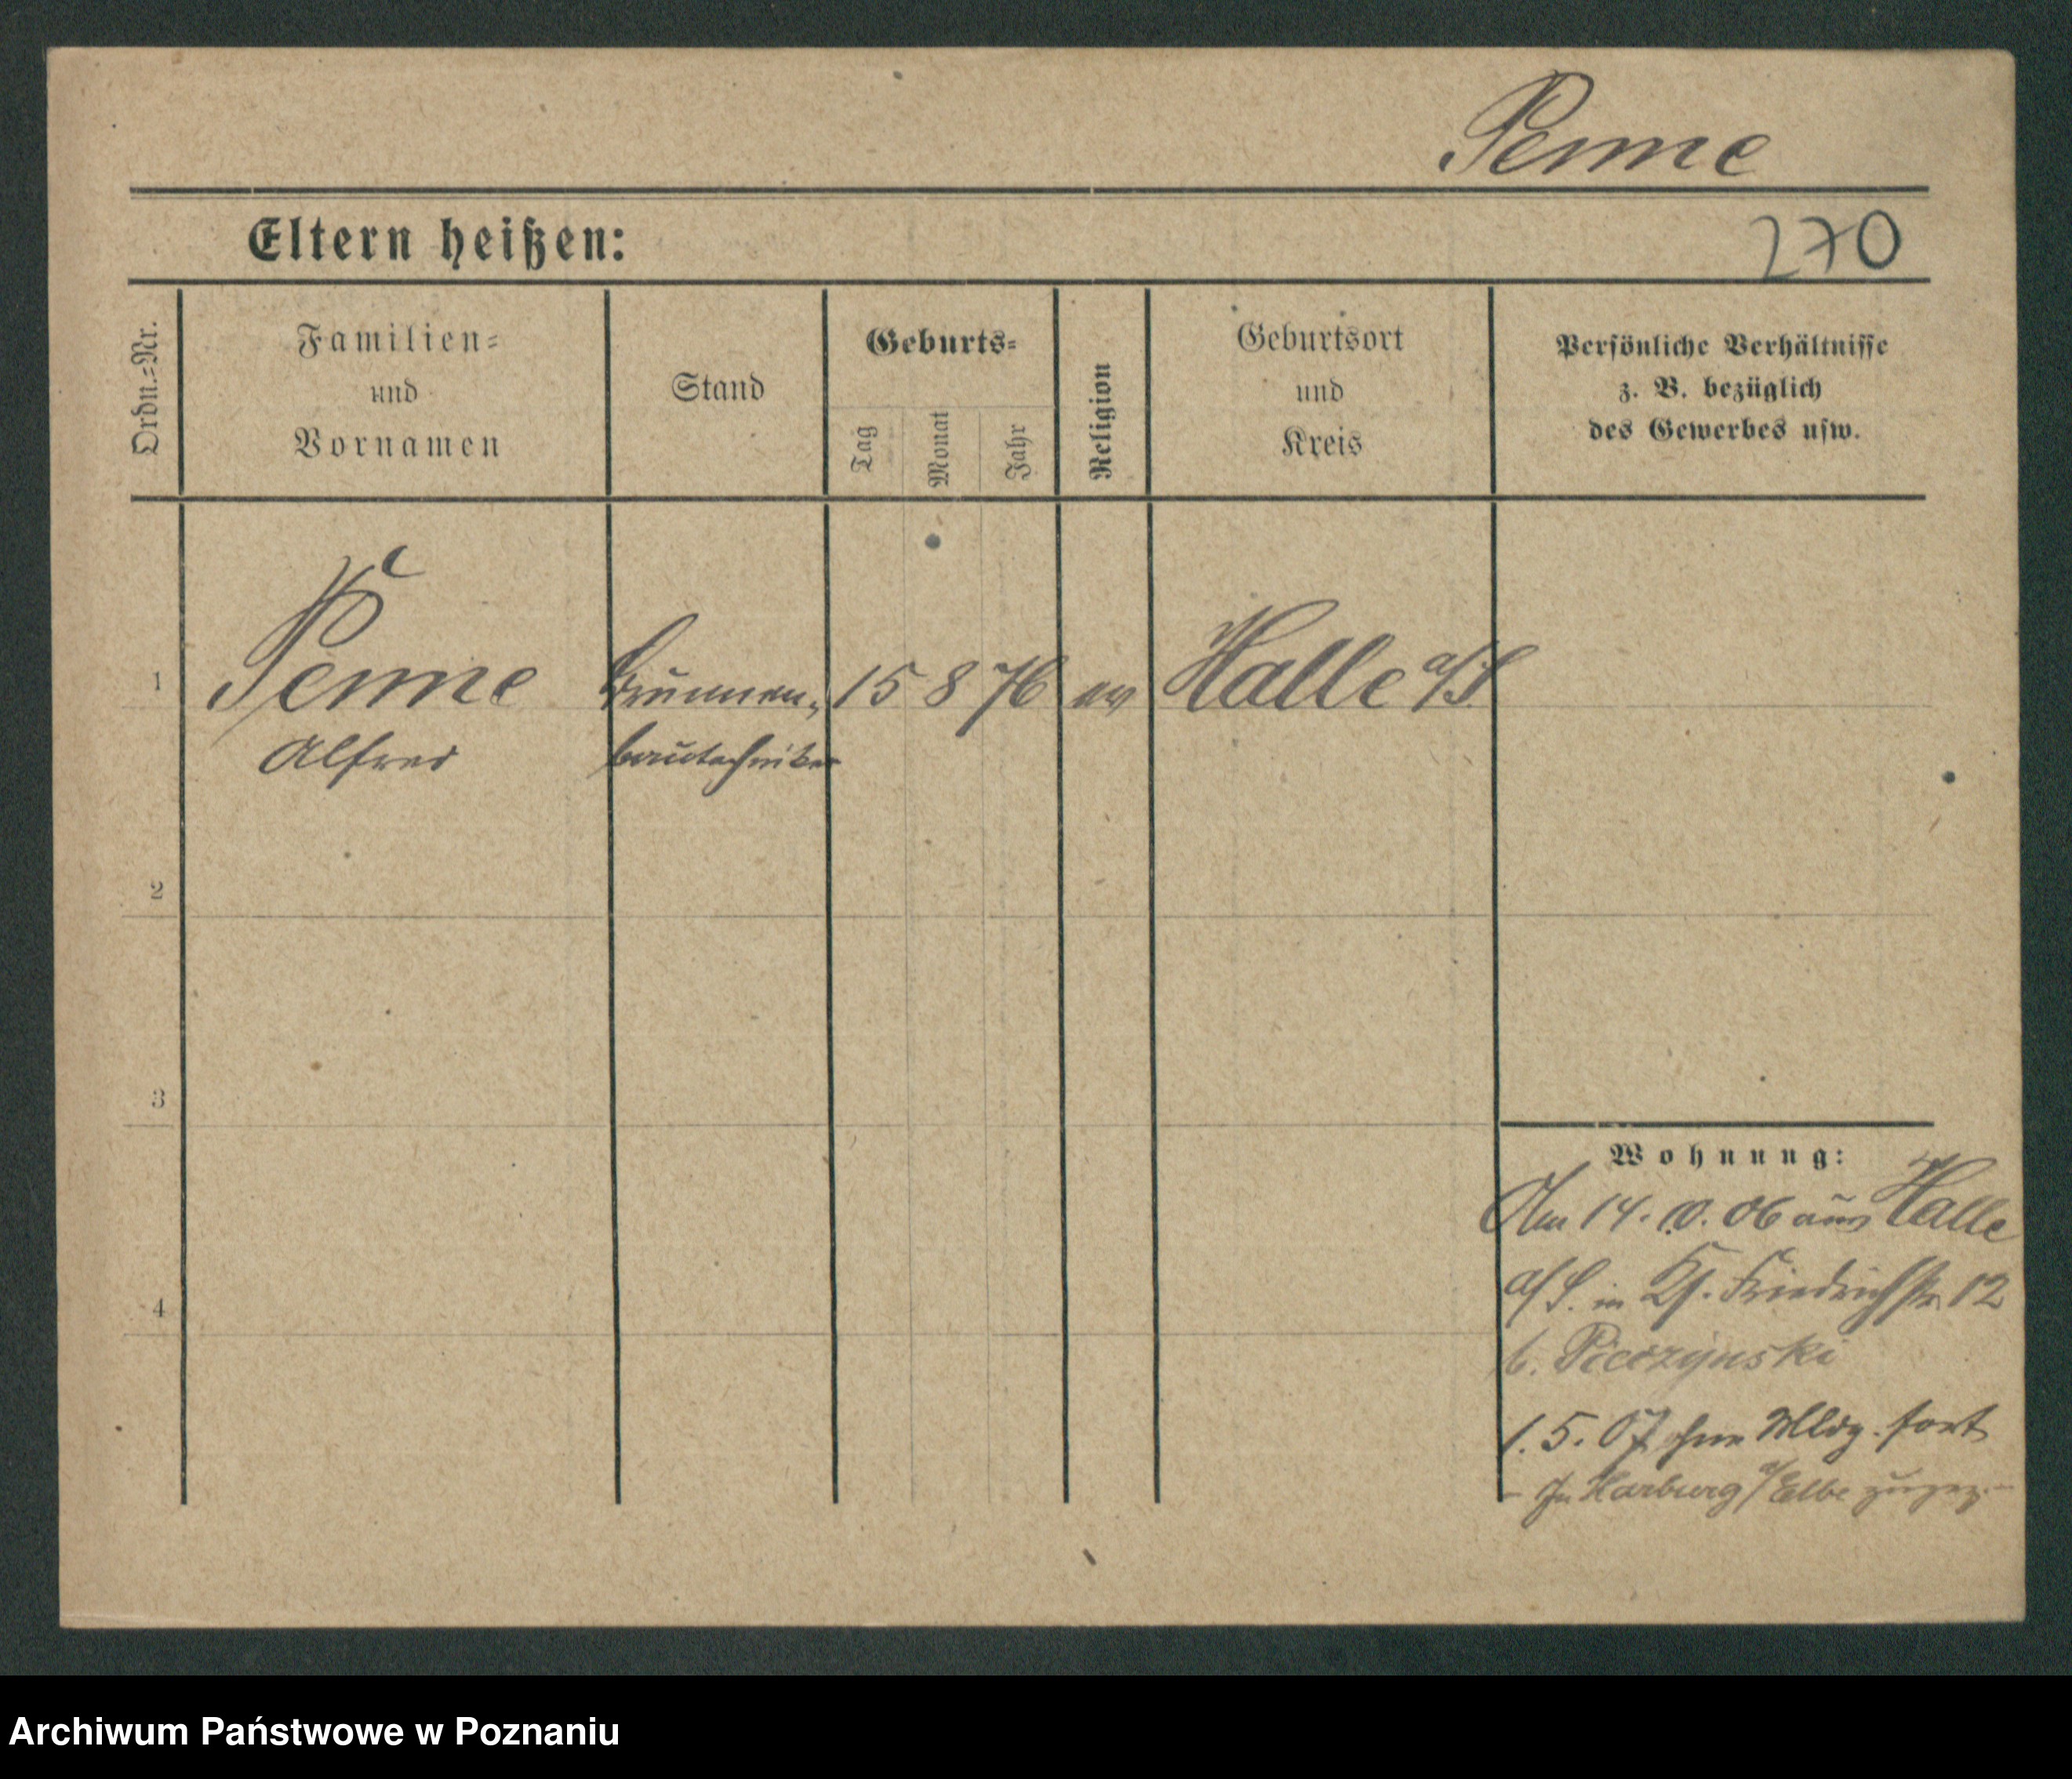 Penne
Eltern heißen:
270
Ordn.=Nr.
Familien=
und
Vornamen
Stand
Geburts=
Tag
Monat
Jahr
Religion
Geburtsort
und
Kreis
Persönliche Verhältnisse
z. B. bezüglich
des Gewerbes usw.
1
Penne
Alfred
Brunnen-
bautechniker
15 8 76
ev
Halle a/S
2
3
4
Wohnung:
Am 14. 10. 06 aus Halle
a/S. in Friedrichstr 12
b.
1. 5. 07 ohne Mldg. fort
- In Harburg a/Elbe zugez. -
Archiwum Państwowe w Poznaniu